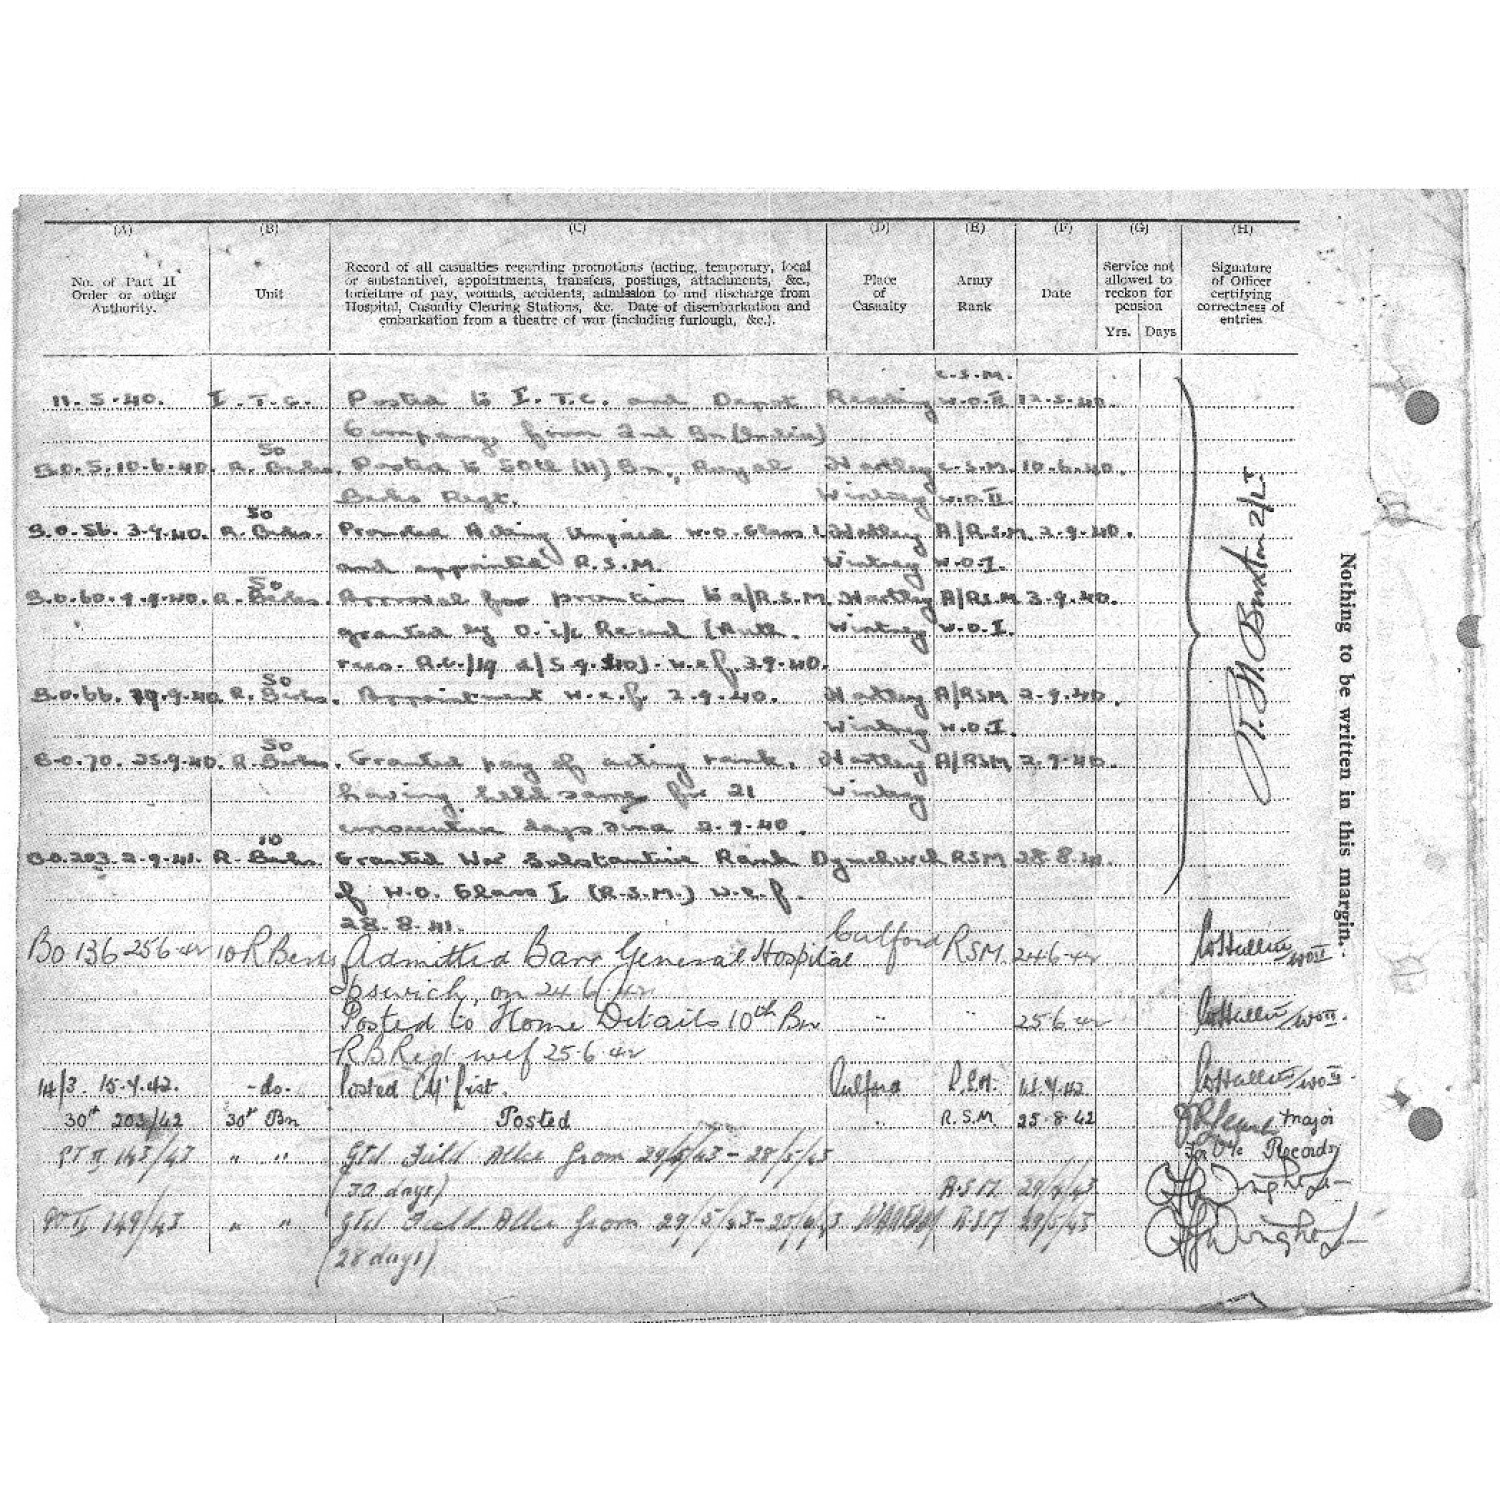 (A) (B) (C) (D) (E) (F) (G) (H)
No. of Part II Order or other Authority.
Unit
Record of all casualties regarding promotions (acting, temporary, local
or substantive), appointments, transfers, postings, attachments, &c.,
forfeiture of pay, wounds, accidents, admission to and discharge from
Hospital, Casualty Clearing Stations, &c. Date of disembarkation and
embarkation from a theatre of war (including furlough, &c.).
Place of Casualty
Army Rank
Date
Service not allowed to reckon for pension
Yrs. Days
Signature of Officer certifying correctness of entries
C.S.M.
11.5.40. I.T.C. Posted to I.T.C. and Depot Reading W.O.II 12.5.40.
Company from 2nd Bn (India)
50
B.O.5.10.6.40. R. Berks. Posted to 50th (H) Bn., Royal Hartley C.S.M. 10.6.40.
Berks Regt. Wintney W.O.II.
50
B.O.56. 3.9.40. R. Berks. Promoted Acting Unpaid W.O. Class I Hartley A/R.S.M. 2.9.40.
and appointed R.S.M. Wintney W.O.I.
50
B.O.60.9.9.40. R. Berks. Approval for promotion to a/R.S.M. Hartley A/RSM 3.9.40.
granted by O. i/c Record (Auth. Wintney W.O.I.
50
B.O.66. 19.9.40. R. Berks. Appointment w.e.f. 2.9.40. Hartley A/RSM 2.9.40.
Wintney W.O.I.
50
B.O.70. 25.9.40. R. Berks. Granted pay of acting rank, Hartley A/RSM 2.9.40.
having held same for 21 Wintney
consecutive days since 2.9.40.
10
B.O.203. 2.9.41. R. Berks. Granted War Substantive Rank Dymchurch RSM 28.8.41.
of W.O. Class I (R.S.M.) w.e.f.
28.8.41.
BO 136 25 6 42 10 R Berks Admitted Barr General Hospital Culford RSM 24 6 42
Ipswich, on 24 6 42
Posted to Home Details 10th Bn " " 25 6 42 WO II.
R B Regt wef 25.6.42
14/3. 15.4.42. -do- Posted list. Culford R.S.M. WO II.
30th 203/42 30th Bn Posted " R.S.M. 25.8.42 Major
For O i/c Records
PT II 143/43 " " Gtd Field Allce from 29/4/43 - 28/5/43
(30 days) R.S.M 29/4/43
PT II 149/43 " " Gtd Field Allce from 29/5/43 - 25/6/43 RSM 29/5/43
(28 days)
Nothing to be written in this margin.